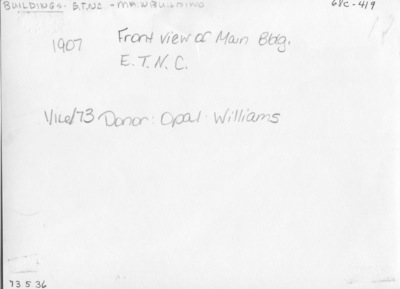 BUILDINGS - E.T.N.C. - MAIN BUILDING
68C-419
1907 Front view of Main Bldg.
E.T.N.C.
Donor: Opal Williams
73 5 36